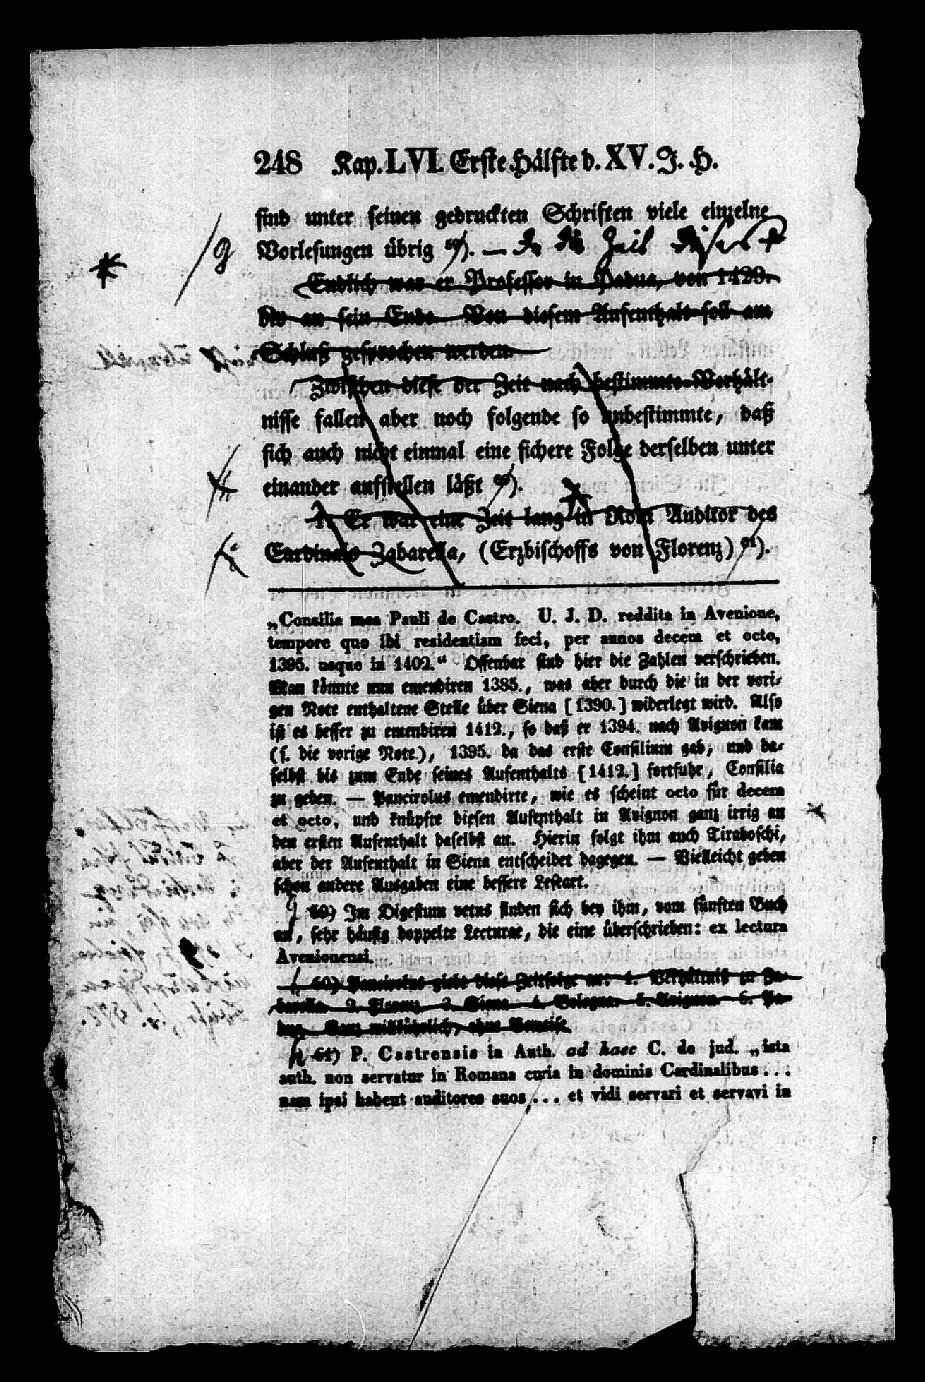 248 Kap. LVI. Erste Hälfte d. XV. J. H.
sind unter seinen gedruckten Schriften viele einzelne
Vorlesungen übrig 59). —
g
Endlich war er Professor in Padua, von 1429.
bis an sein Ende. Von diesem Aufenthalt soll am
Schluß gesprochen werden.
Zwischen diese der Zeit nach bestimmte Verhält-
nisse fallen aber noch folgende so unbestimmte, daß
sich auch nicht einmal eine sichere Folge derselben unter
einander aufstellen läßt 60).
1. Er war eine Zeit lang in Rom Auditor des
Cardinals Zabarella, (Erzbischoffs von Florenz) 61).
„Consilia mea Pauli de Castro. U. J. D. reddita in Avenione,
tempore quo ibi residentiam feci, per annos decem et octo,
1395. usque in 1402.“ Offenbar sind hier die Zahlen verschrieben.
Man könnte nun emendiren 1385., was aber durch die in der vori-
gen Note enthaltene Stelle über Siena [1390.] widerlegt wird. Also
ist es besser zu emendiren 1412., so daß er 1394. nach Avignon kam
(s. die vorige Note), 1395. da das erste Consilium gab, und da-
selbst bis zum Ende seines Aufenthalts [1412.] fortfuhr, Consilia
zu geben. — Pancirolus emendirte, wie es scheint octo für decem
et octo, und knüpfte diesen Aufenthalt in Avignon ganz irrig an
den ersten Aufenthalt daselbst an. Hierin folgt ihm auch Tiraboschi,
aber der Aufenthalt in Siena entscheidet dagegen. — Vielleicht geben
schon andere Ausgaben eine bessere Lesart.
g 59) Im Digestum vetus finden sich bey ihm, vom fünften Buch
an, sehr häufig doppelte Lecturae, die eine überschrieben: ex lectura
Avenionensi.
60) Pancirolus giebt diese Zeitfolge an: 1. Verhältniß zu Za-
barella. 2. Florenz. 3. Siena. 4. Bologna. 5. Avignon. 6. Pa-
dua. Ganz willkührlich, ohne Beweise.
h 61) P. Castrensis in Auth. ad haec C. de jud. „ista
auth. non servatur in Romana curia in dominis Cardinalibus . . .
nam ipsi habent auditores suos . . . et vidi servari et servavi in